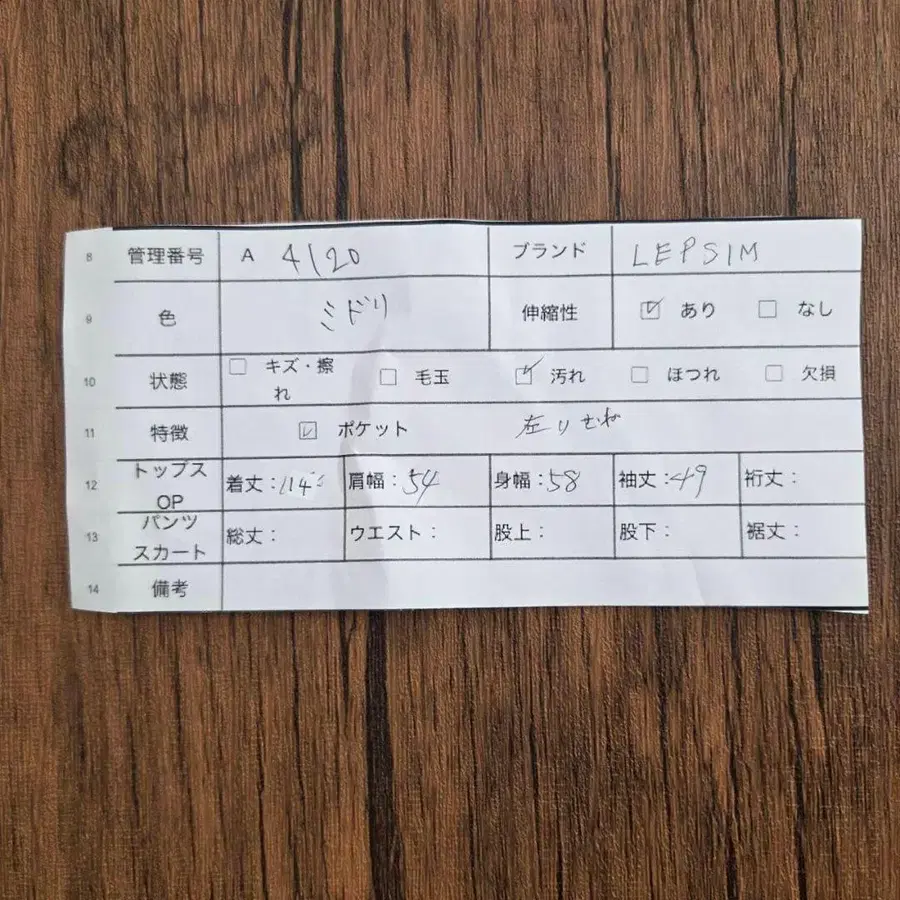 8 管理番号 A 4120 ブランド LEPSIM
9 色 ミドリ 伸縮性 ☑ あり ☐ なし
10 状態 ☐ キズ・擦れ ☐ 毛玉 ☑ 汚れ ☐ ほつれ ☐ 欠損
11 特徴 ☑ ポケット 左りむね
12 トップス OP 着丈：114 肩幅：54 身幅：58 袖丈：49 裄丈：
13 パンツ スカート 総丈： ウエスト： 股上： 股下： 裾丈：
14 備考